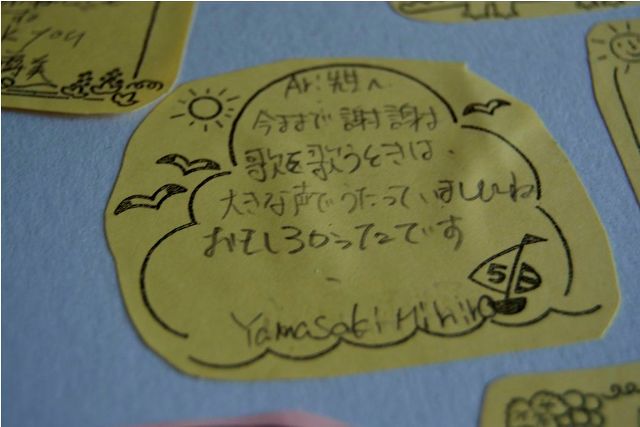 you
Ari 先生へ
今まで 謝謝
歌を歌うときは、
大きな声でうたっていましたね
おもしろかったです
5
Yamasaki Hihiro